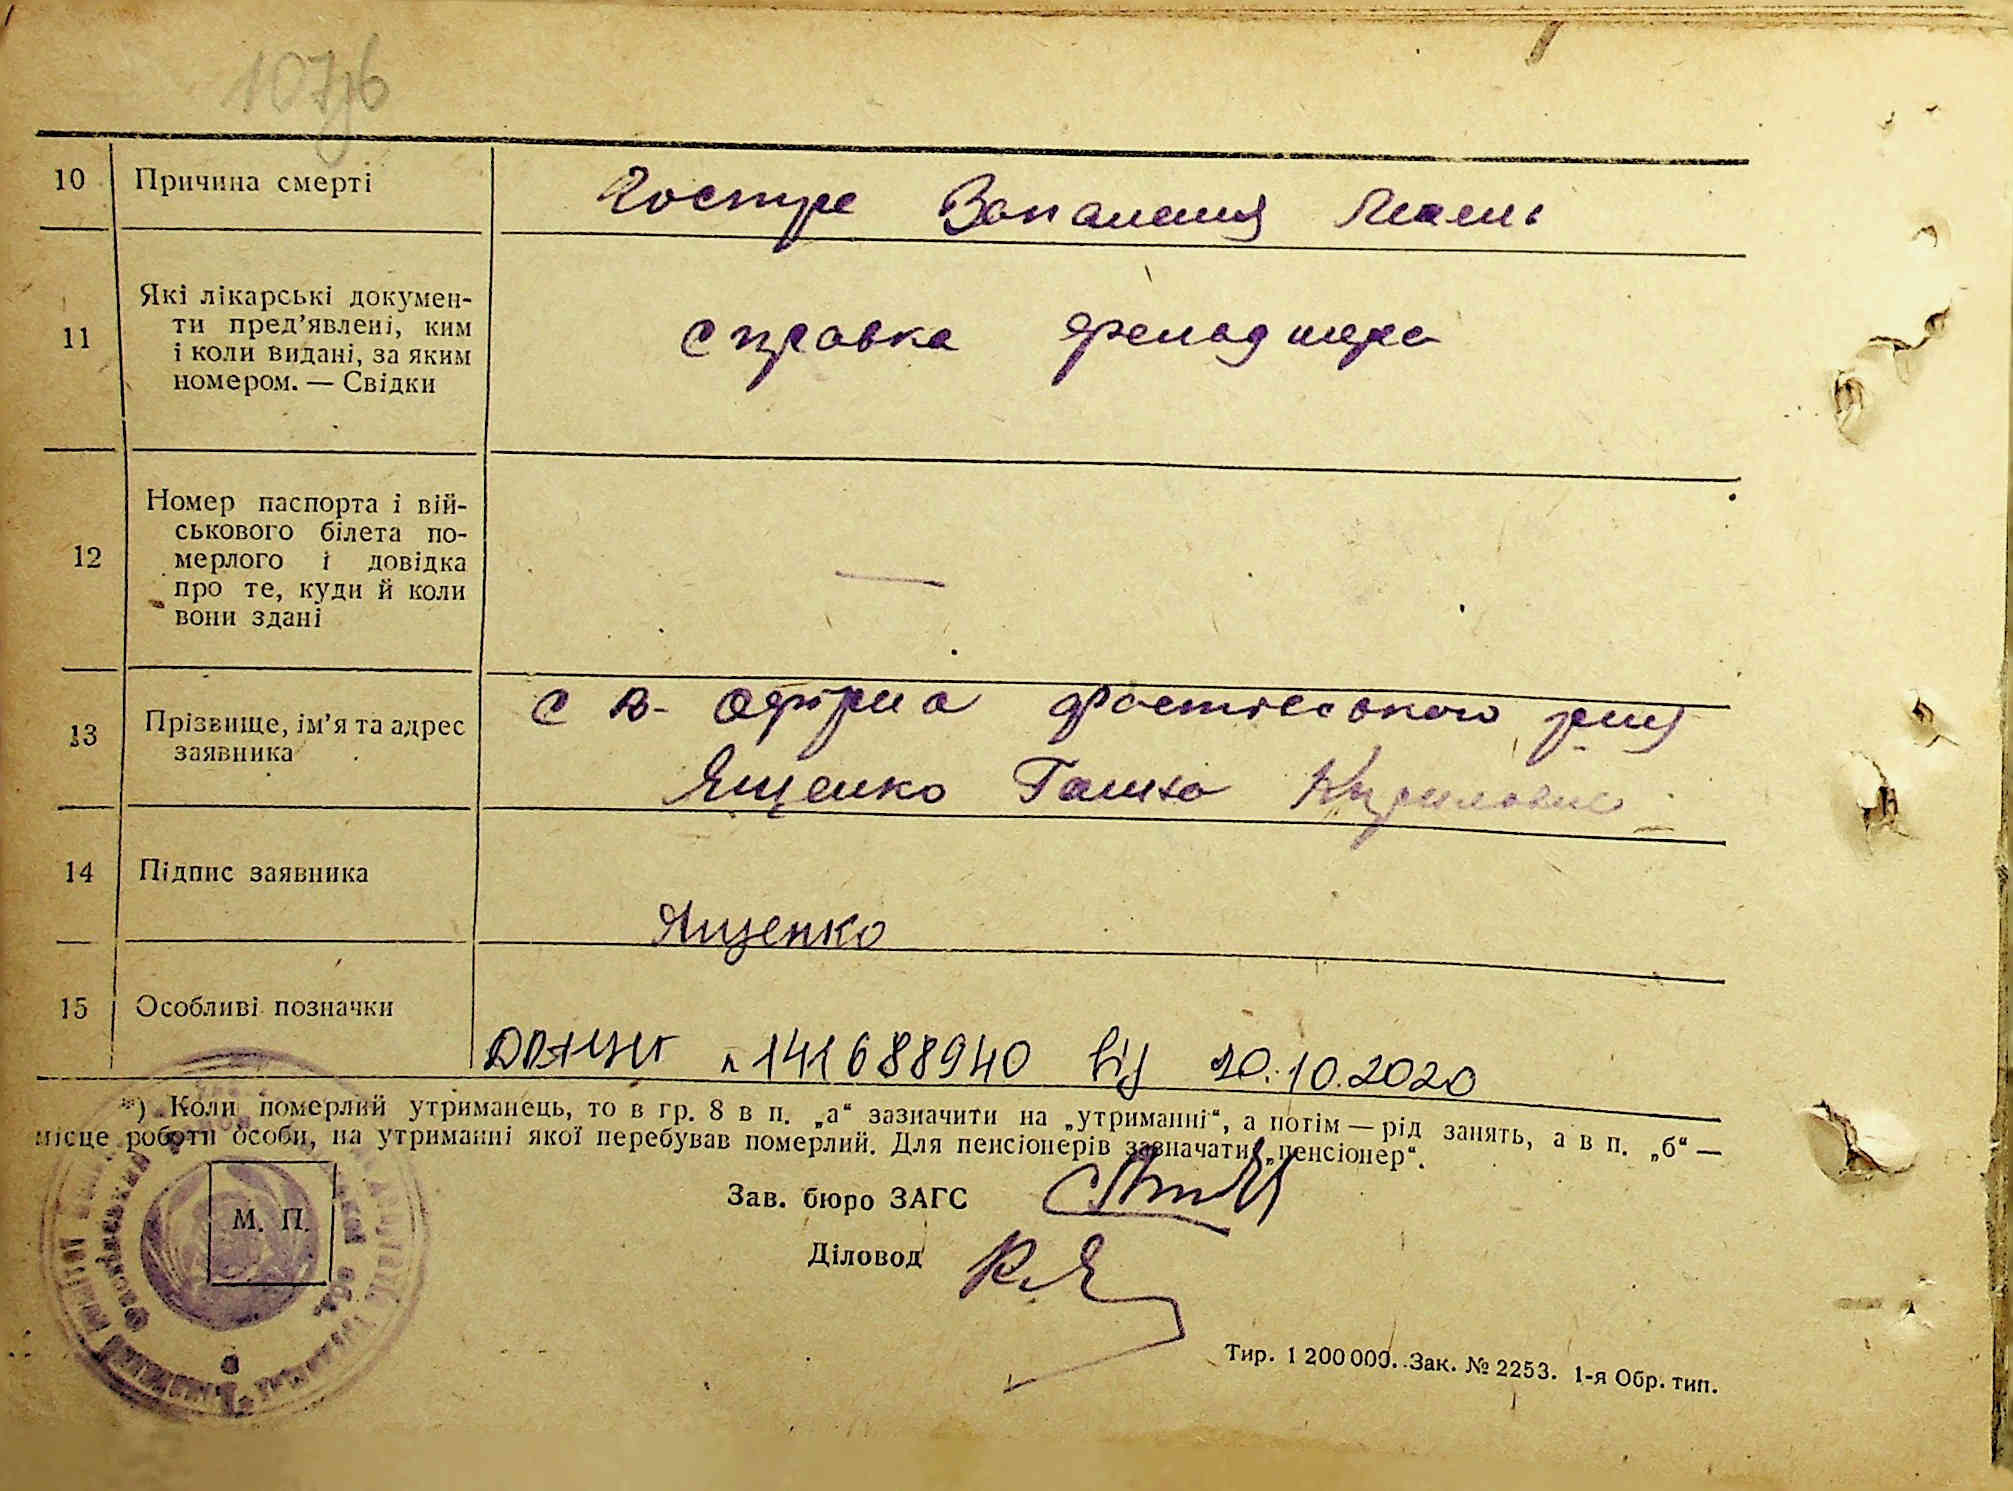 10 Причина смерті Гостре Запалення
11 Які лікарські докумен-
ти пред’явлені, ким
і коли видані, за яким
номером. — Свідки
справка фельдшера
12 Номер паспорта і вій-
ськового білета по-
мерлого і довідка
про те, куди й коли
вони здані
—
13 Прізвище, ім’я та адрес
заявника
с В-Офірна
Ященко Ганна
14 Підпис заявника
Ященко
15 Особливі позначки
ДРАЦСГ 141688940 від 20.10.2020
*) Коли померлий утриманець, то в гр. 8 в п. „а“ зазначити на „утриманні“, а потім — рід занять, а в п. „б“ —
місце роботи особи, на утриманні якої перебував померлий. Для пенсіонерів зазначати „пенсіонер“.
М. П.
Зав. бюро ЗАГС
Діловод
Тир. 1 200 000. Зак. № 2253. 1-я Обр. тип.